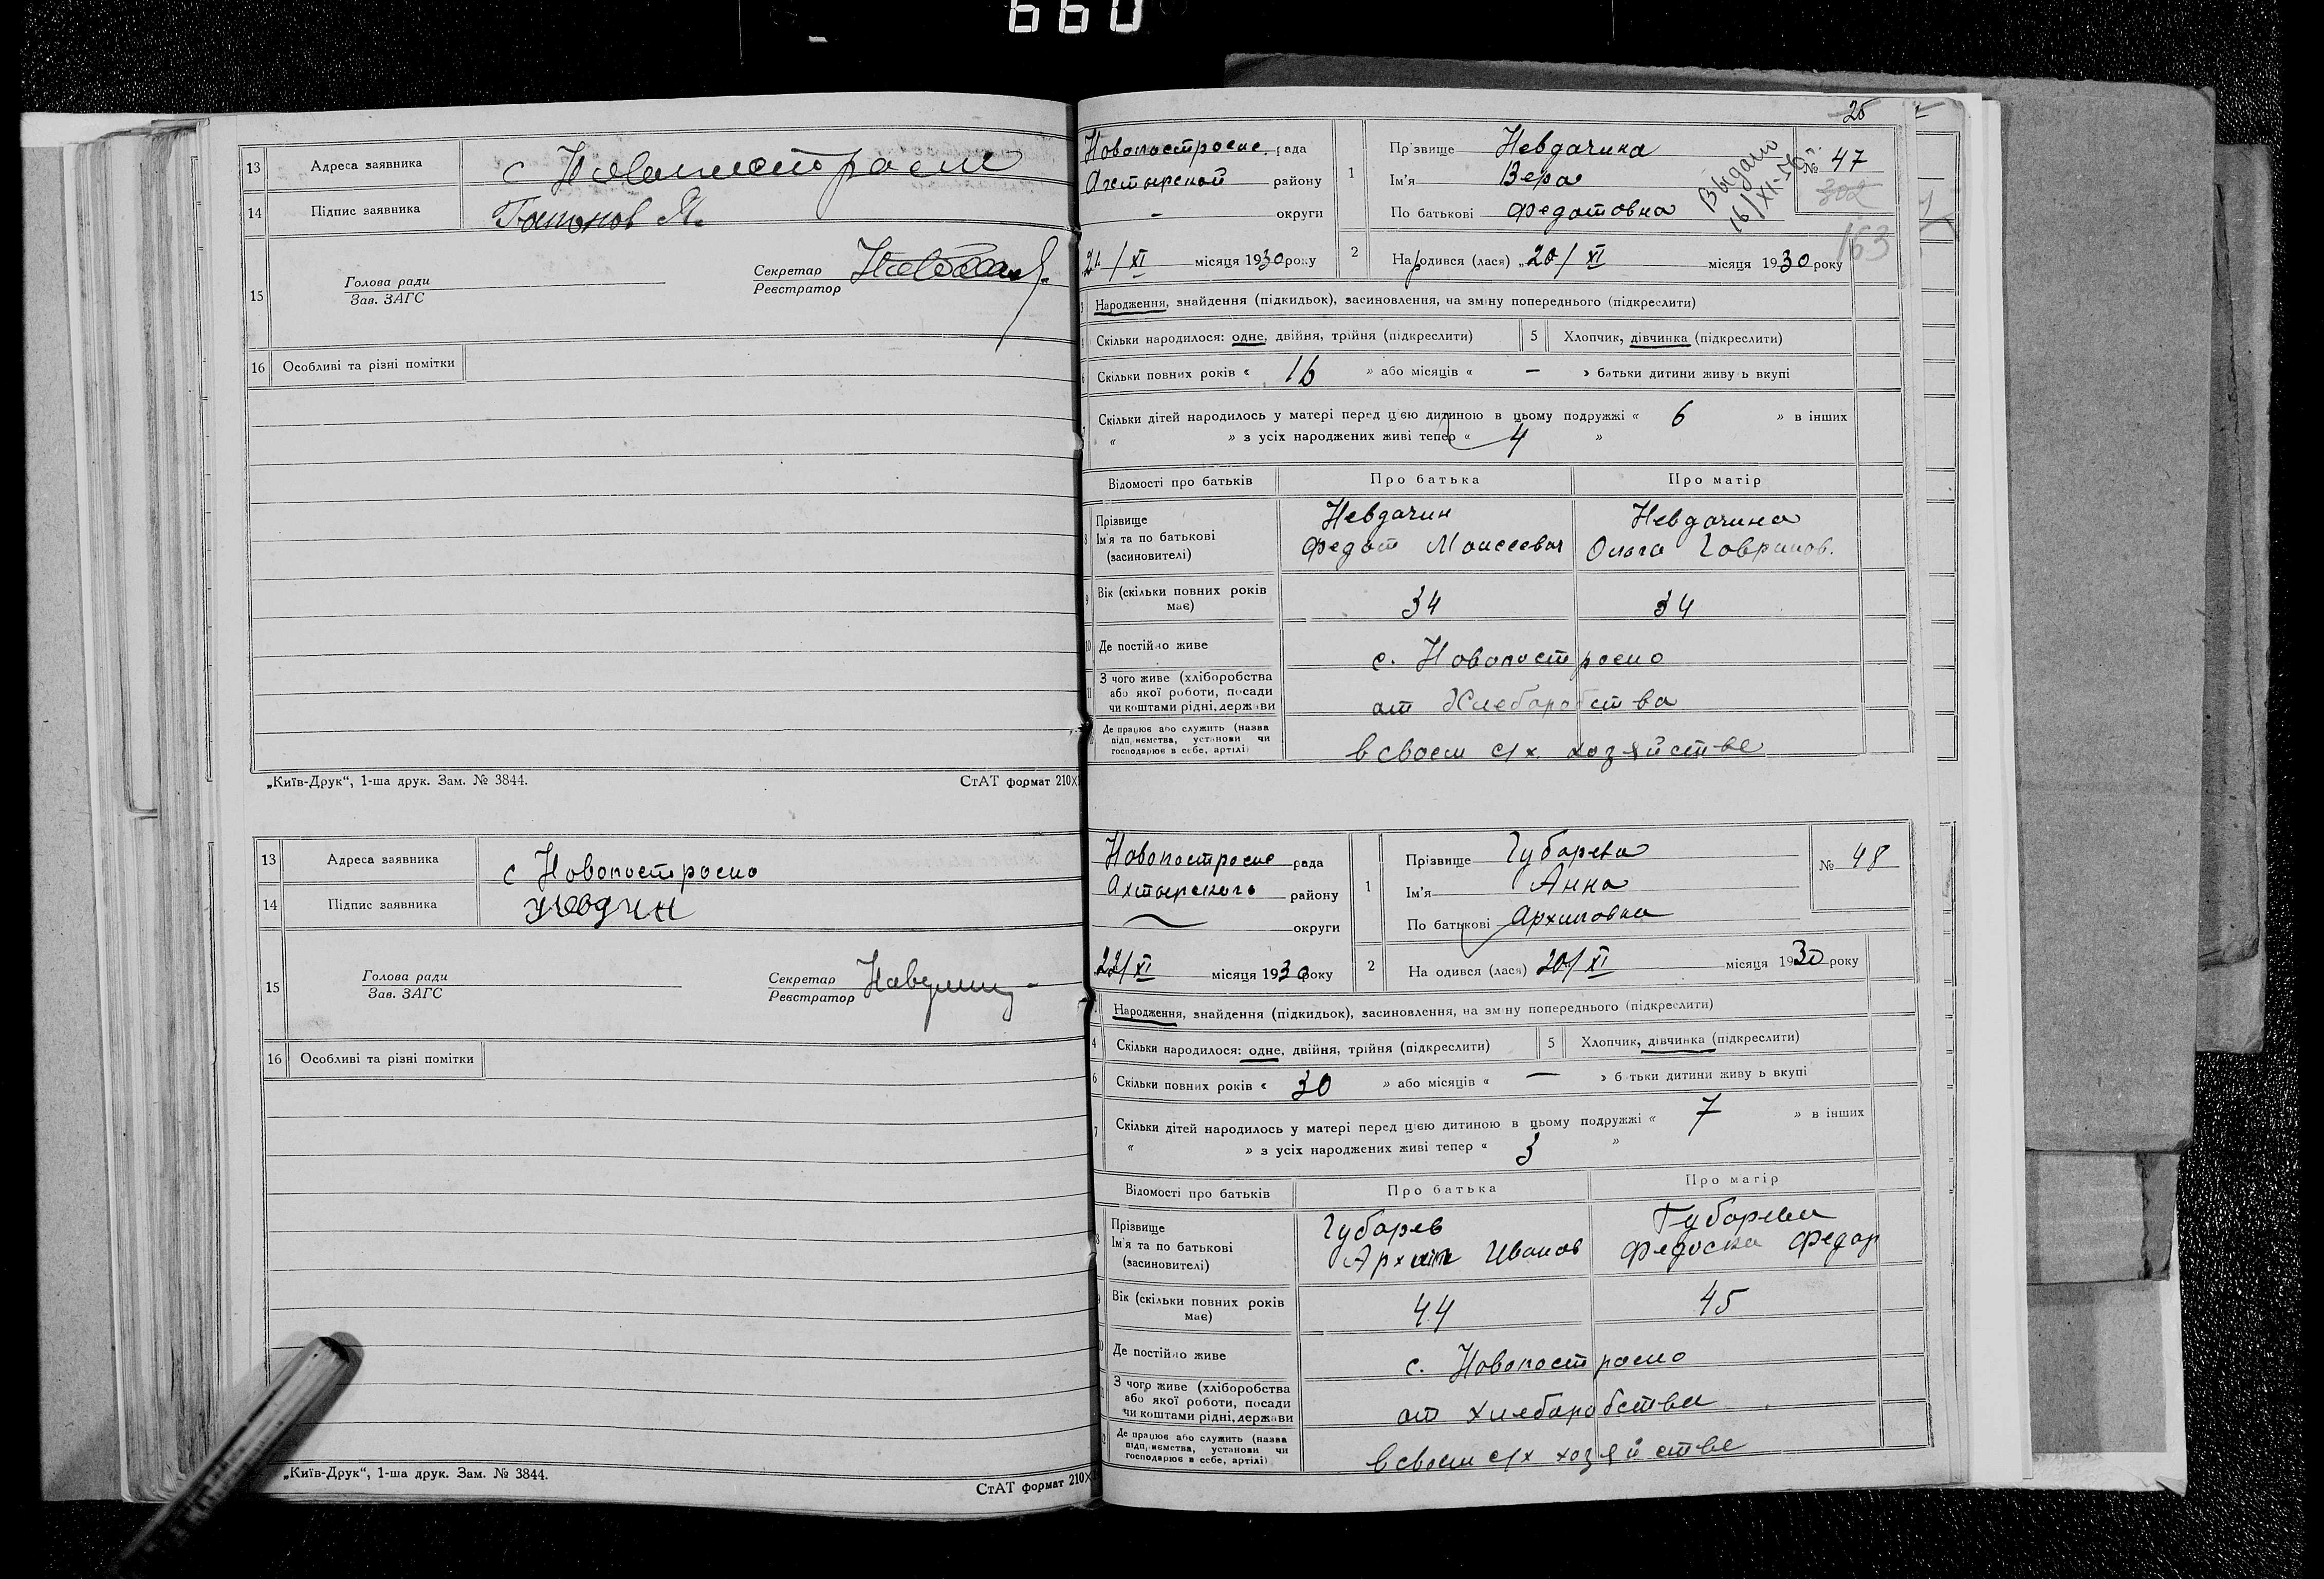 660
13 Адреса заявника с Новопостроене
14 Підпис заявника Гапонов Я.
15 Голова ради
Зав. ЗАГС
Секретар
Реєстратор
16 Особливі та різні помітки
„Київ-Друк“, 1-ша друк. Зам. № 3844. СтАТ формат 210×
13 Адреса заявника с Новопостроено
14 Підпис заявника Невдчн
15 Голова ради
Зав. ЗАГС
Секретар
Реєстратор
16 Особливі та різні помітки
„Київ-Друк“, 1-ша друк. Зам. № 3844.
СтАТ формат 210×
26
Новопостроене. рада
Ахтырской району
- округи
21/XI місяця 1930 року
1 Прізвище Невдачина
Ім'я Вера
По батькові Федотовна
Выдано
16/XI-
№ 47
302
163
2 Народився (лася) „20/XI місяця 1930 року
3 Народження, знайдення (підкидьок), засиновлення, на зміну попереднього (підкреслити)
4 Скільки народилося: одне, двійня, трійня (підкреслити) 5 Хлопчик, дівчинка (підкреслити)
6 Скільки повних років « 16 » або місяців « — » батьки дитини живу ь вкупі
7 Скільки дітей народилось у матері перед цією дитиною в цьому подружжі « 6 » в інших
« » з усіх народжених живі тепер « 4 »
Відомості про батьків Про батька Про матір
8 Прізвище
Ім'я та по батькові
(засиновителі)
Невдачин
Федот Моисеевич
Невдачина
Ольга Гаврилов.
9 Вік (скільки повних років
має) 34 34
10 Де постійно живе с. Новопостроено
11 З чого живе (хліборобства
або якої роботи, посади
чи коштами рідні, держави
от Хлеборобства
Де працює або служить (назва
підприємства, установи чи
господарює в себе, артілі)
в своем с/х. хозяйстве
Новопостроене рада
Ахтырского району
округи
22/XI місяця 1930 року
1 Прізвище Губарева
Ім'я Анна
По батькові Архиповна
№ 48
2 На одився (лася) 20/XI місяця 1930 року
Народження, знайдення (підкидьок), засиновлення, на зміну попереднього (підкреслити)
4 Скільки народилося: одне, двійня, трійня (підкреслити) 5 Хлопчик, дівчинка (підкреслити)
6 Скільки повних років « 30 » або місяців « — » батьки дитини живу ь вкупі
7 Скільки дітей народилось у матері перед цією дитиною в цьому подружжі « 7 » в інших
« » з усіх народжених живі тепер « 3 »
Відомості про батьків Про батька Про матір
8 Прізвище
Ім'я та по батькові
(засиновителі)
Губарев
Архип Иванов
Губарева
Федоска Федор
9 Вік (скільки повних років
має) 44 45
10 Де постійно живе с. Новопостроено
11 З чого живе (хліборобства
або якої роботи, посади
чи коштами рідні, держави
от хлеборобства
Де працює або служить (назва
підприємства, установи чи
господарює в себе, артілі)
в своем с/х хозяйстве